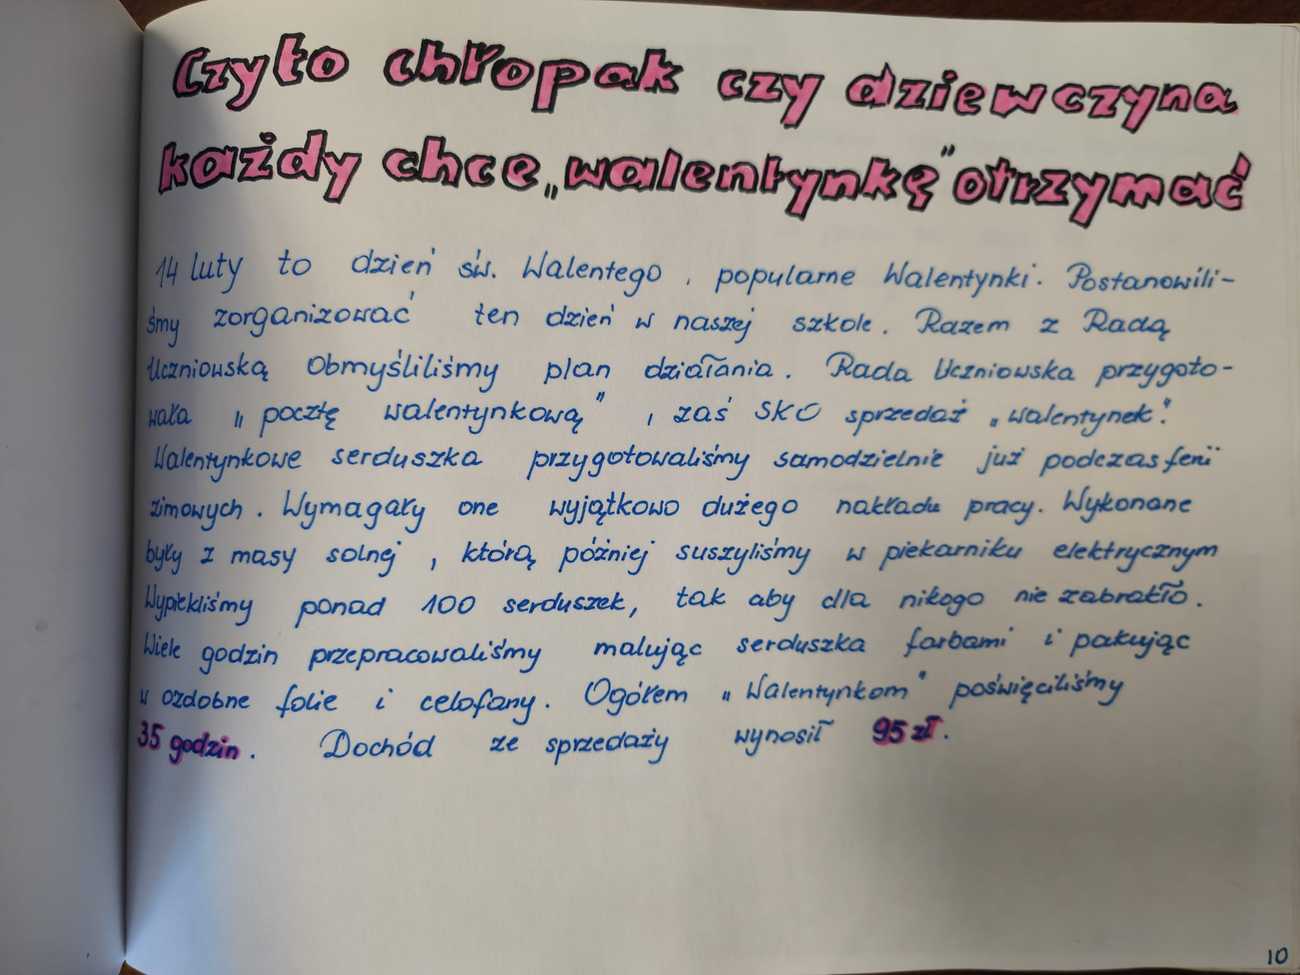 Czy to chłopak czy dziewczyna
każdy chce „walentynkę" otrzymać
14 luty to dzień św. Walentego, popularne Walentynki. Postanowili-
śmy zorganizować ten dzień w naszej szkole. Razem z Radą
Uczniowską obmyśliliśmy plan działania. Rada Uczniowska przygoto-
wała „pocztę walentynkową", zaś SKO sprzedaż „walentynek".
Walentynkowe serduszka przygotowaliśmy samodzielnie już podczas ferii
zimowych. Wymagały one wyjątkowo dużego nakładu pracy. Wykonane
były z masy solnej, którą później suszyliśmy w piekarniku elektrycznym
Wypiekliśmy ponad 100 serduszek, tak aby dla nikogo nie zabrakło.
Wiele godzin przepracowaliśmy malując serduszka farbami i pakując
w ozdobne folie i celofany. Ogółem „Walentynkom" poświęciliśmy
35 godzin. Dochód ze sprzedaży wynosił 95 zł.
10